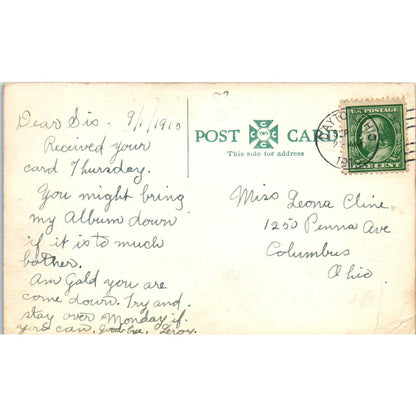 Dear Sis. 9/1/1910
Received your
card Thursday.
You might bring
my Album down
if it is to much
bother.
Am Gald you are
come down. Try and
stay over Monday if
you can. Good-bye, Leroy.
POST CARD
This side for address
U.S. POSTAGE
DAYTON, OHIO
SEP
Miss Leona Cline
1250 Penna Ave
Columbus
Ohio